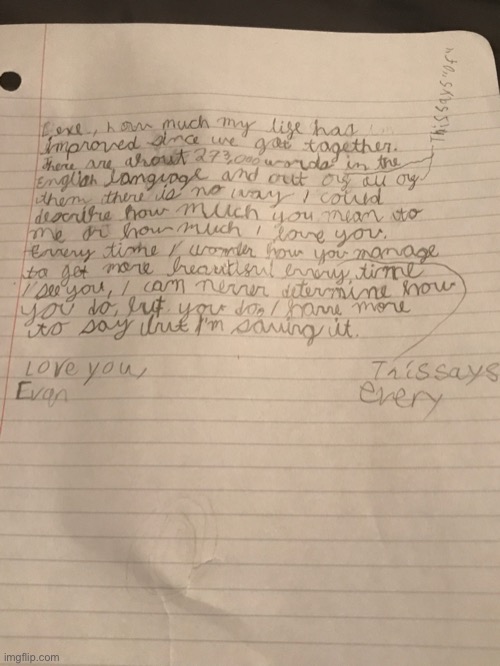 how much my life has
improved since we got together.
There are about 273,000 words in the
English language and out of all of
them there is no way I could
describe how much you mean to
me or how much I love you.
Every time I wonder how you manage
to get more beautiful every time
I see you, I can never determine how
you do, but you do, I have more
to say but I'm saving it.
Love you,
Evan
This says "of"
This says
every
imgflip.com